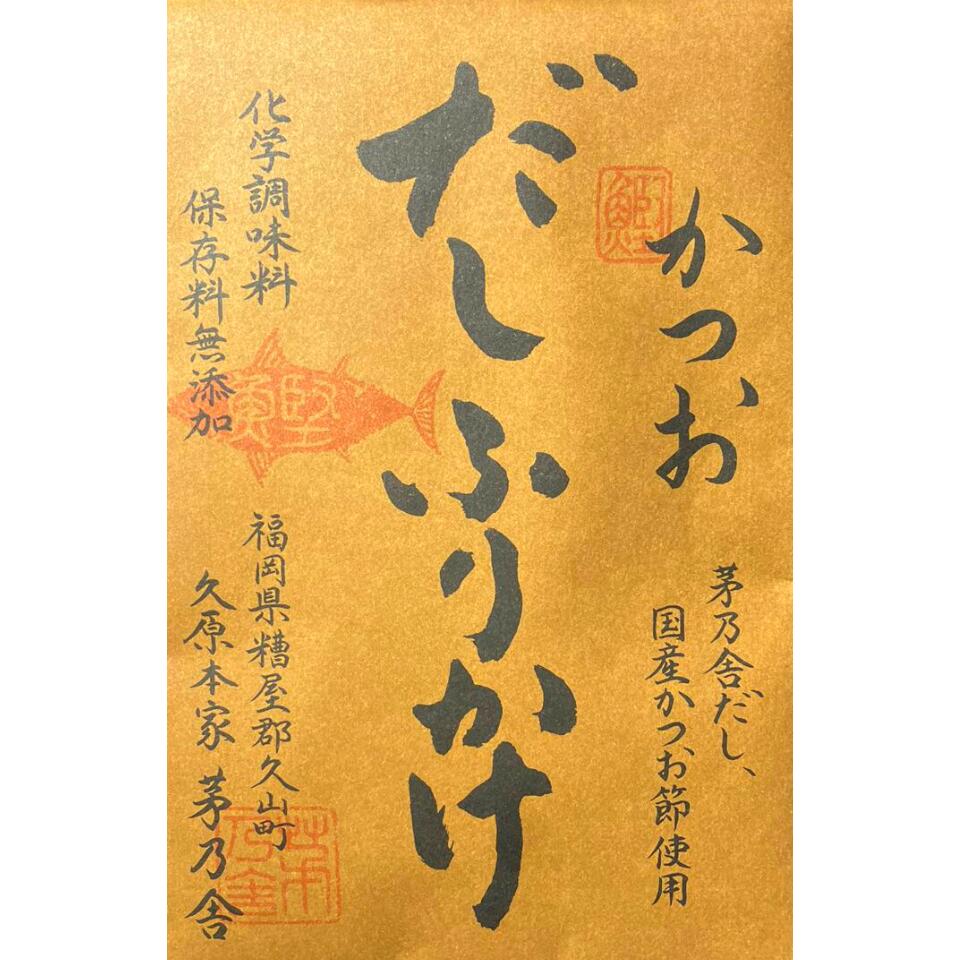 かつお
鰹
だしふりかけ
茅乃舎だし、
国産かつお節使用
化学調味料
保存料無添加
鰹
福岡県糟屋郡久山町
久原本家 茅乃舎
茅乃舎